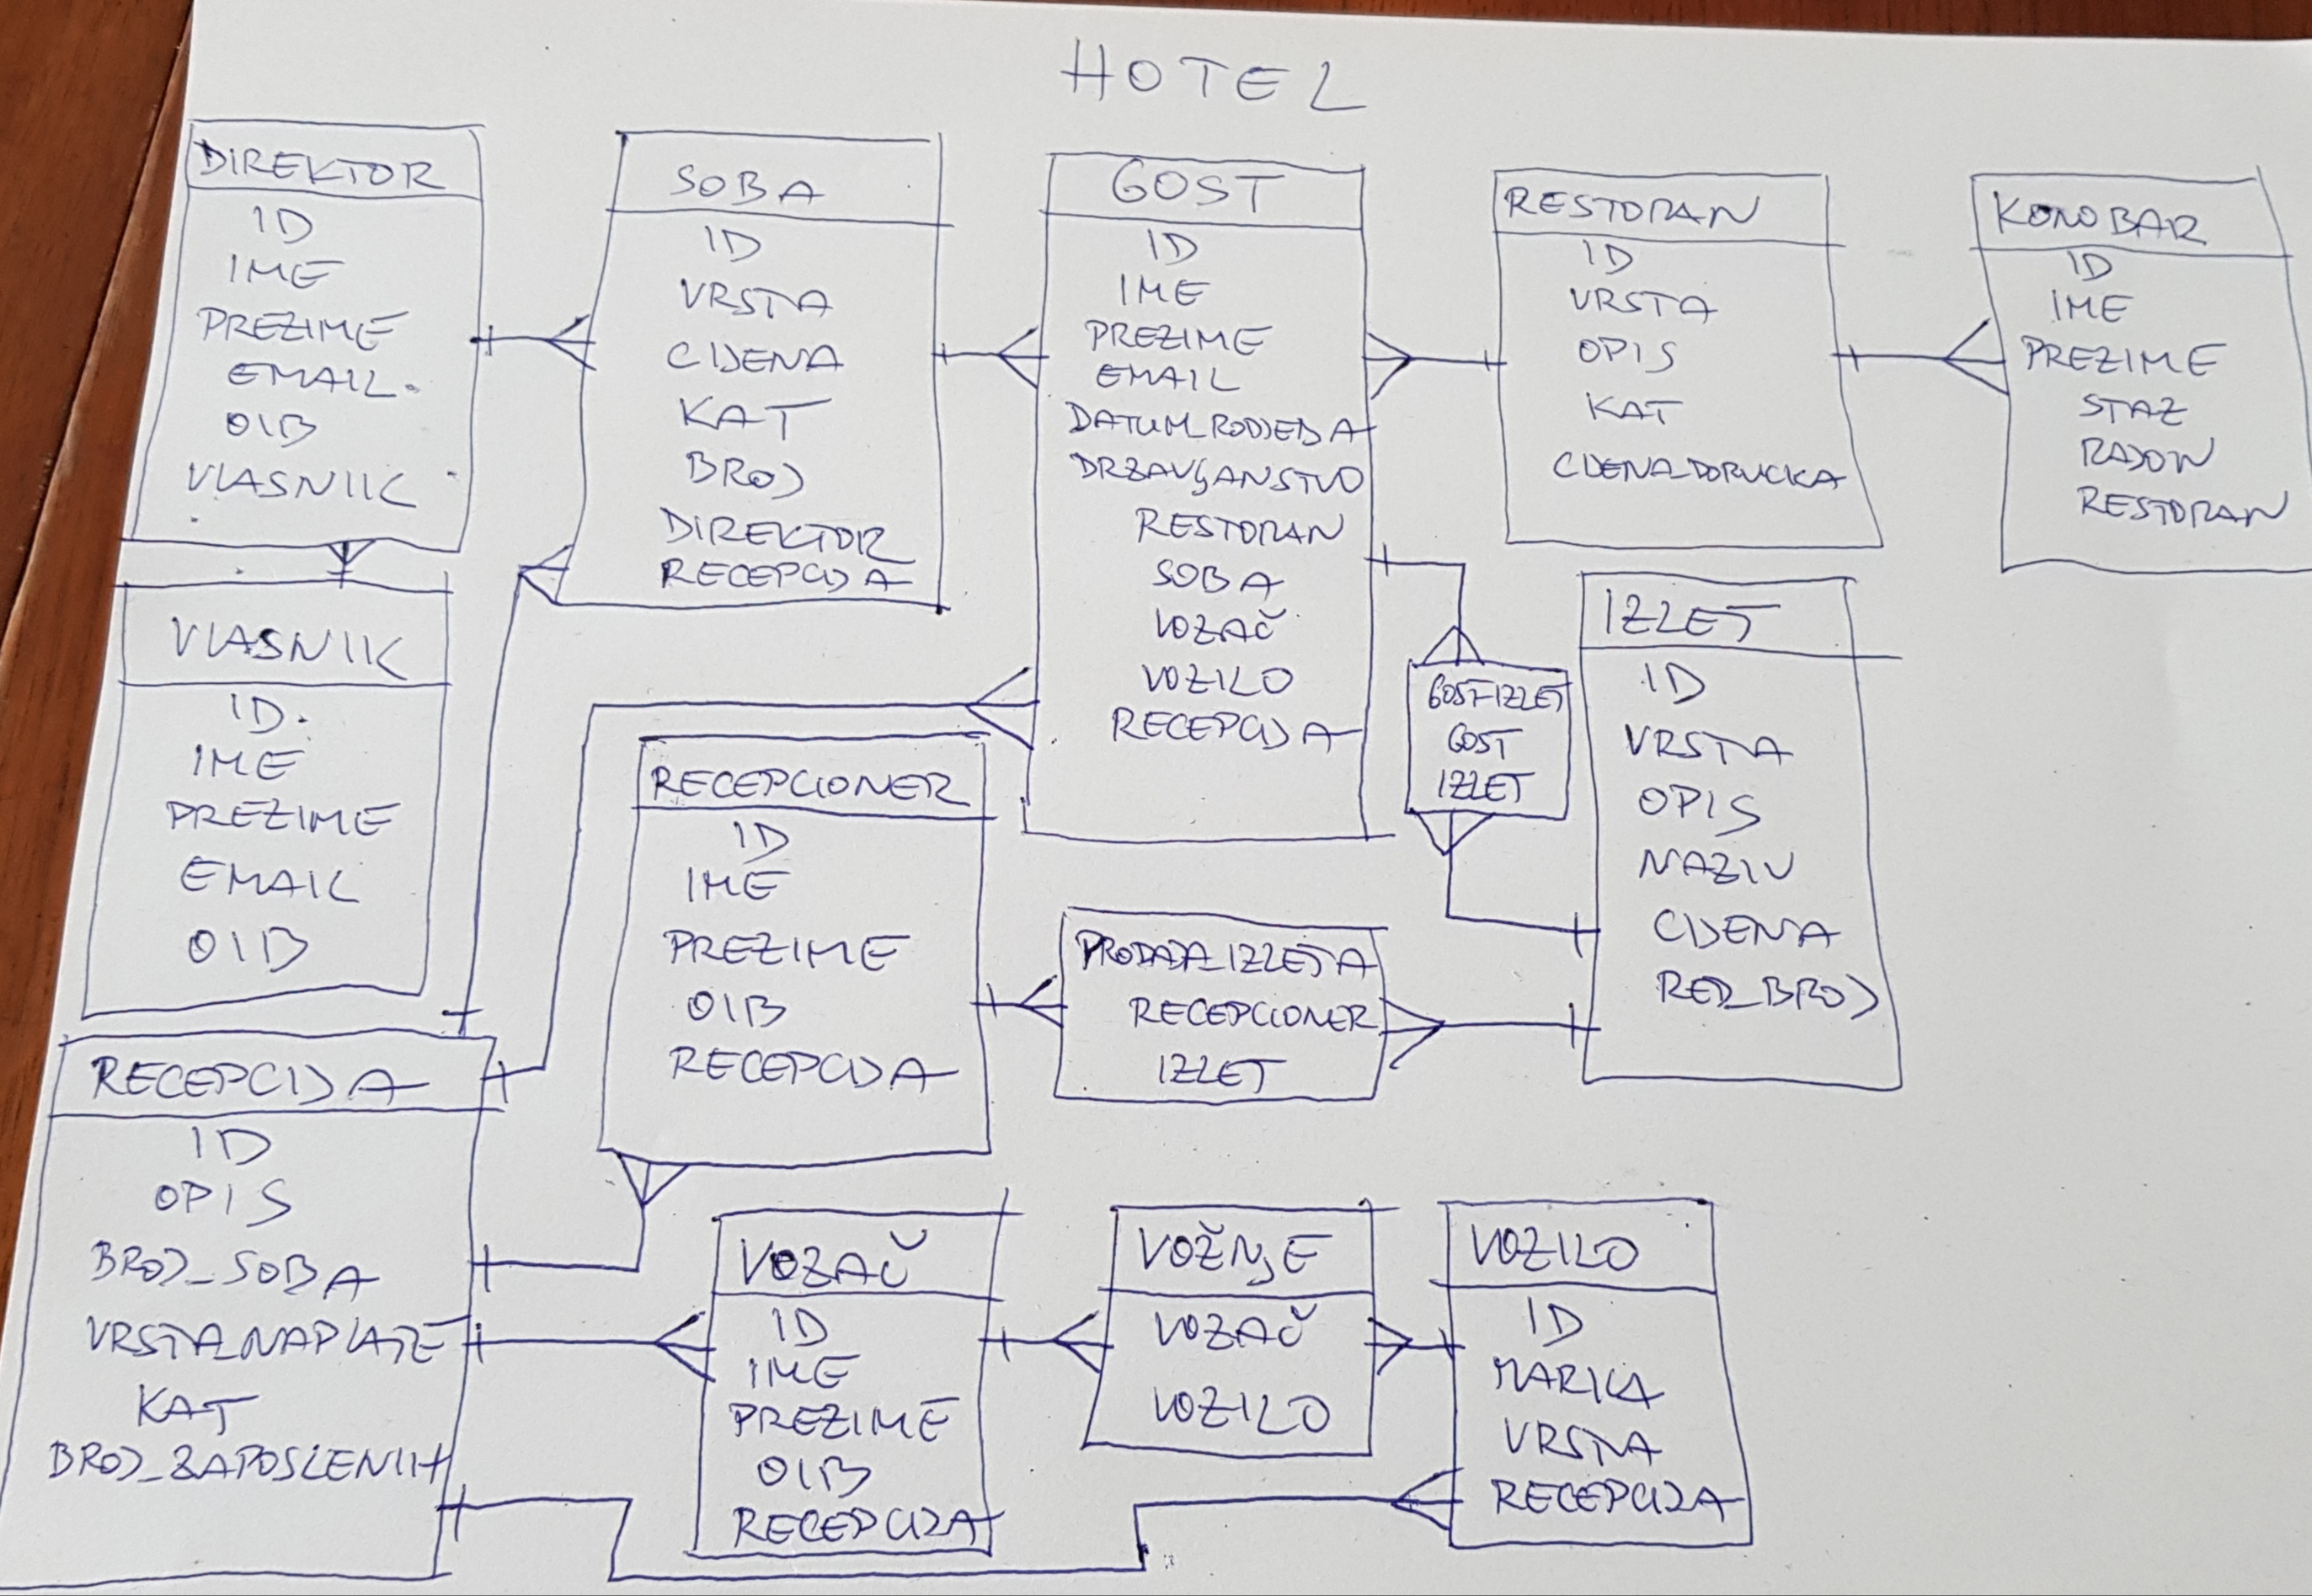 HOTEL
DIREKTOR
ID
IME
PREZIME
EMAIL
OIB
VLASNIK
SOBA
ID
VRSTA
CIJENA
KAT
BROJ
DIREKTOR
RECEPCIJA
GOST
ID
IME
PREZIME
EMAIL
DATUM_RODJENJA
DRZAVLJANSTVO
RESTORAN
SOBA
VOZAČ
VOZILO
RECEPCIJA
RESTORAN
ID
VRSTA
OPIS
KAT
CIJENA_DORUCKA
KONOBAR
ID
IME
PREZIME
STAZ
RESTORAN
VLASNIK
ID
IME
PREZIME
EMAIL
OIB
RECEPCIONER
ID
IME
PREZIME
OIB
RECEPCIJA
GOST-IZLET
GOST
IZLET
IZLET
ID
VRSTA
OPIS
NAZIV
CIJENA
RED_BROJ
PRODAJA_IZLETA
RECEPCIONER
IZLET
RECEPCIJA
ID
OPIS
BROJ_SOBA
VRSTA_NAPLATE
KAT
BROJ_ZAPOSLENIH
VOZAČ
ID
IME
PREZIME
OIB
RECEPCIJA
VOŽNJE
VOZAČ
VOZILO
VOZILO
ID
MARKA
VRSTA
RECEPCIJA